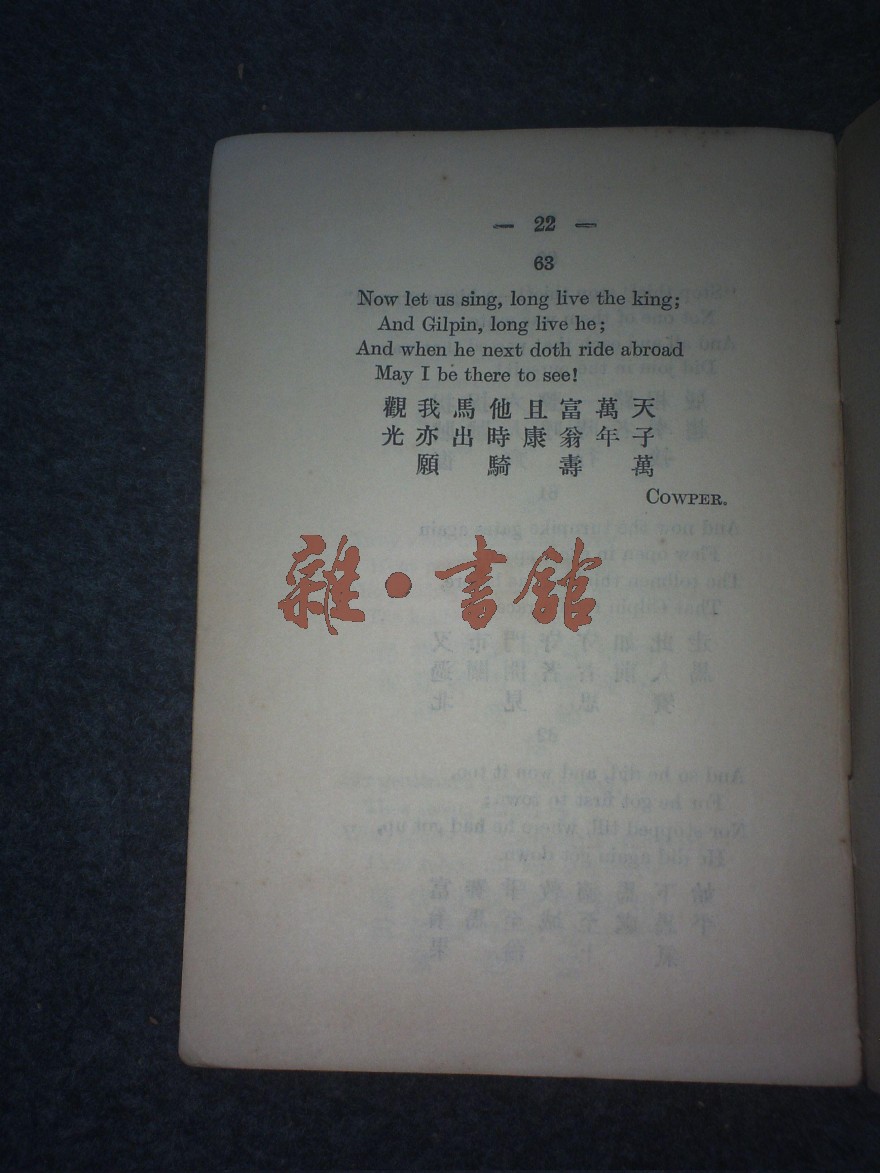 — 22 —
63
Now let us sing, long live the king;
And Gilpin, long live he;
And when he next doth ride abroad
May I be there to see!
天子萬
萬年
富翁壽
且康
他時騎
馬出
我亦願
觀光
COWPER.
雜·書館